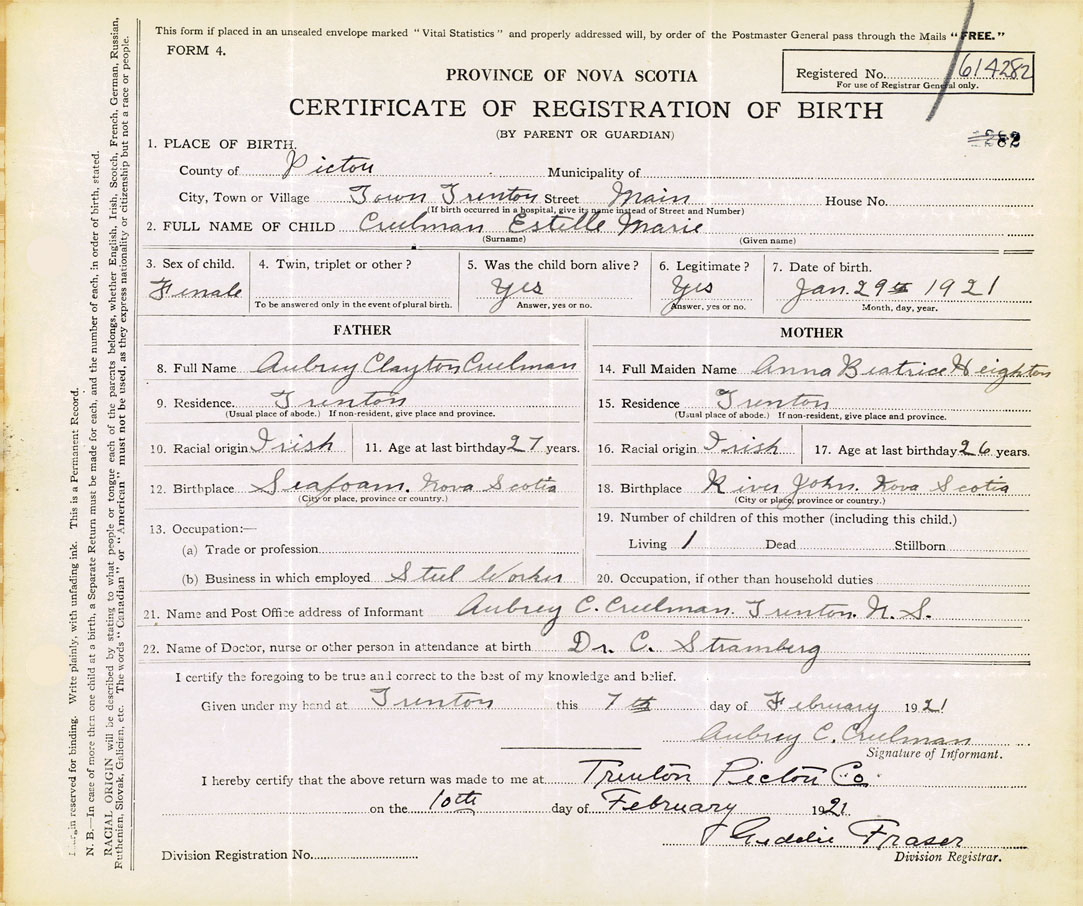 This form if placed in an unsealed envelope marked "Vital Statistics" and properly addressed will, by order of the Postmaster General pass through the Mails "FREE."
FORM 4.
Registered No. 614282
For use of Registrar General only.
PROVINCE OF NOVA SCOTIA
CERTIFICATE OF REGISTRATION OF BIRTH
(BY PARENT OR GUARDIAN)
282
1. PLACE OF BIRTH.
County of Picton Municipality of
City, Town or Village Town Trenton Street Main House No.
(If birth occurred in a hospital, give its name instead of Street and Number)
2. FULL NAME OF CHILD Creelman Estelle Marie
(Surname) (Given name)
3. Sex of child. 4. Twin, triplet or other? 5. Was the child born alive? 6. Legitimate? 7. Date of birth.
Female Yes Yes Jan. 29th 1921
To be answered only in the event of plural birth. Answer, yes or no. Answer, yes or no. Month, day, year.
FATHER MOTHER
8. Full Name Aubrey Clayton Creelman 14. Full Maiden Name Anna Beatrice Heighton
9. Residence. Trenton 15. Residence Trenton
(Usual place of abode.) If non-resident, give place and province. (Usual place of abode.) If non-resident, give place and province.
10. Racial origin Irish 11. Age at last birthday 27 years. 16. Racial origin Irish 17. Age at last birthday 26 years.
12. Birthplace Seafoam. Nova Scotia 18. Birthplace River John. Nova Scotia
(City or place, province or country.) (City or place, province or country.)
13. Occupation:— 19. Number of children of this mother (including this child.)
(a) Trade or profession Living 1 Dead Stillborn
(b) Business in which employed Steel Worker 20. Occupation, if other than household duties
21. Name and Post Office address of Informant Aubrey C. Creelman. Trenton. N. S.
22. Name of Doctor, nurse or other person in attendance at birth Dr. C. Stramberg
I certify the foregoing to be true and correct to the best of my knowledge and belief.
Given under my hand at Trenton this 7th day of February 1921
Aubrey C. Creelman
Signature of Informant.
I hereby certify that the above return was made to me at Trenton Picton Co.
on the 10th day of February 1921
Fraser
Division Registration No. Division Registrar.
Margin reserved for binding. Write plainly, with unfading ink. This is a Permanent Record.
N. B.—In case of more than one child at a birth, a Separate Return must be made for each, and the number of each, in order of birth, stated.
RACIAL ORIGIN will be described by stating to what people or tongue each of the parents belongs, whether English, Irish, Scotch, French, German, Russian,
Ruthenian, Slovak, Galician, etc. The words "Canadian" or "American" must not be used, as they express nationality or citizenship but not a race or people.